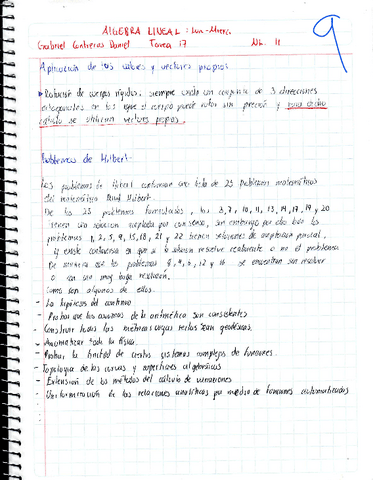 ALGEBRA LINEAL: Lun-Mierc.
Gabriel Contreras Daniel Tarea 17 NL. 11
9
Aplicación de los valores y vectores propios
Rotación de cuerpos rígidos, siempre existe un conjunto de 3 direcciones
ortogonales en las que el cuerpo puede rotar sin precesión y para dicho
cálculo se utilizan vectores propios.
Problemas de Hilbert
Los problemas de Hilbert conforman una lista de 23 problemas matemáticos
del matemático David Hilbert.
De los 23 problemas formulados, los 3, 7, 10, 11, 13, 14, 17, 19 y 20
tienen una solución aceptada por consenso, sin embargo por otro lado los
problemas 1, 2, 5, 9, 15, 18, 21 y 22 tienen soluciones de aceptación parcial,
y existe controversia en que si la solución resuelve realmente o no el problema
De manera que los problemas 8, 4, 6, 12 y 16 se encuentran sin resolver
o con una muy baja resolución.
Como son algunos de ellos.
- La hipótesis del continuo
- Probar que los axiomas de la aritmética son consistentes
- Construir todas las métricas cuyas rectas sean geodésicas.
- Axiomatizar toda la física.
- Probar la finitud de ciertos sistemas completos de funciones.
- Topología de las curvas y superficies algebraicas
- Extensión de los métodos del cálculo de variaciones
- Uniformización de las relaciones analíticas por medio de funciones automórficas